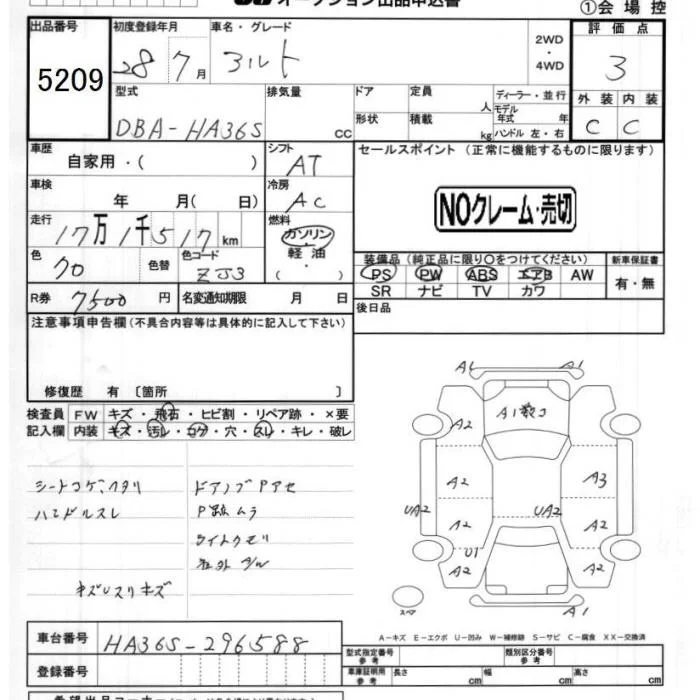 オークション出品申込書
①会場控
出品番号
5209
初度登録年月
28 7月
車名・グレード
アルト
2WD
・
4WD
評価点
3
型式
DBA-HA36S
排気量
cc
ドア
形状
定員
人
積載
kg
ディーラー・並行
モデル年式 年
ハンドル 左・右
外装 内装
C C
車歴
自家用・( )
シフト
AT
セールスポイント (正常に機能するものに限ります)
NOクレーム・売切
車検
年 月( 日)
冷房
AC
走行
17万1千517km
燃料
ガソリン
・
軽油
( )
色
クロ
色替
色コード
ZJ3
装備品 (純正品に限り○をつけてください)
PS PW ABS エアB AW
SR ナビ TV カワ
新車保証書
有・無
R券 7500円
名変通知期限 月 日
後日品
注意事項申告欄(不具合内容等は具体的に記入して下さい)
修復歴 有 〔箇所 〕
検査員記入欄
FW キズ・飛石・ヒビ割・リペア跡・×要
内装 キズ・汚レ・コゲ・穴・スレ・キレ・破レ
シートコゲ、ヘタリ
ハンドルスレ
キズUスリキズ
ドアノブPアセ
Pムラ
ライトクモリ
A1 A1
A1
A2 A2
A2 A3
UA2 A2 UA2 A2
U1
A2 A2
A1
スペア
A-キズ E-エクボ U-凹み W-補修跡 S-サビ C-腐食 XX-交換済
車台番号
HA36S-296588
登録番号
型式指定番号
参考
類別区分番号
参考
車庫証明用
参考
長さ 幅 高さ
希望出品コーナー